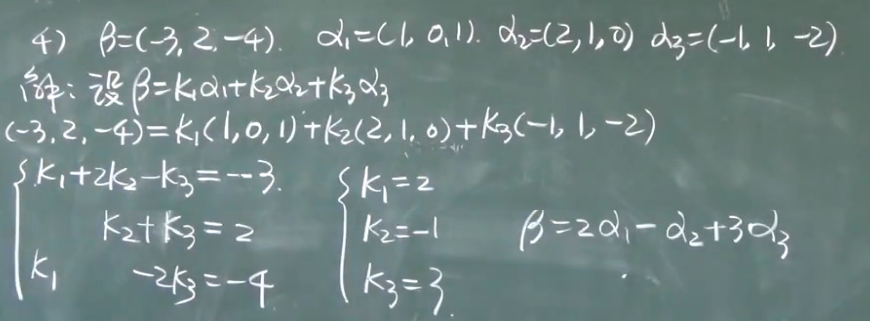 4) β=(-3, 2, -4). α₁=(1, 0, 1). α₂=(2, 1, 0) α₃=(-1, 1, -2).
解: 设 β=k₁α₁+k₂α₂+k₃α₃
(-3, 2, -4)=k₁(1, 0, 1)+k₂(2, 1, 0)+k₃(-1, 1, -2)
{ k₁+2k₂-k₃=-3.
k₂+k₃=2
k₁ -2k₃=-4
{ k₁=2
k₂=-1
k₃=3.
β=2α₁-α₂+3α₃